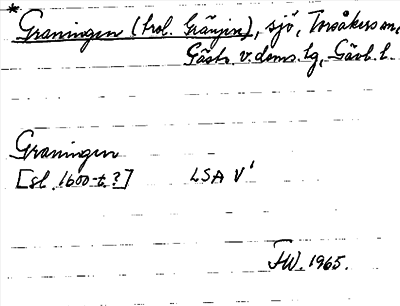 * Graningen (trol. Gräningen), sjö, Torsåkers sn,
Gästr. v. doms. lg, Gävl. l.
Graningen
[sl. 1600-t.?] LSA V¹
FW. 1965.